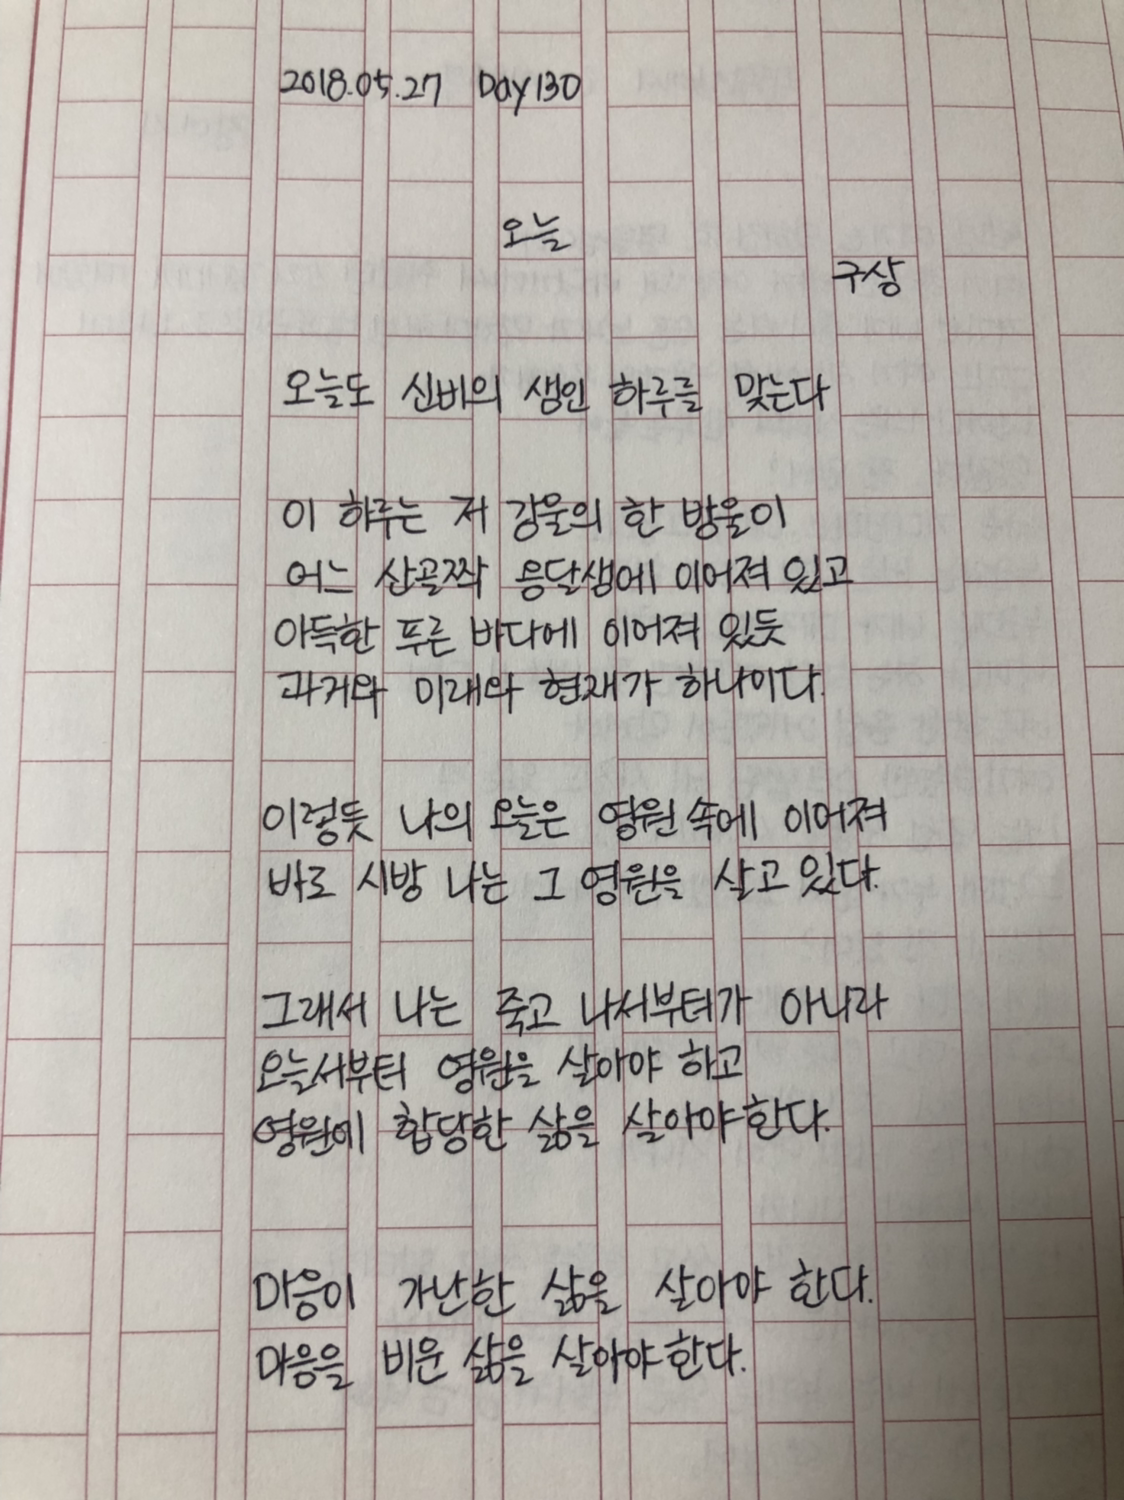 2018.05.27 Day 130
오늘
구상
오늘도 신비의 샘인 하루를 맞는다
이 하루는 저 강물의 한 방울이
어느 산골짝 옹달샘에 이어져 있고
아득한 푸른 바다에 이어져 있듯
과거와 미래와 현재가 하나이다.
이렇듯 나의 오늘은 영원 속에 이어져
바로 시방 나는 그 영원을 살고 있다.
그래서 나는 죽고 나서부터가 아니라
오늘서부터 영원을 살아야 하고
영원에 합당한 삶을 살아야 한다.
마음이 가난한 삶을 살아야 한다.
마음을 비운 삶을 살아야 한다.